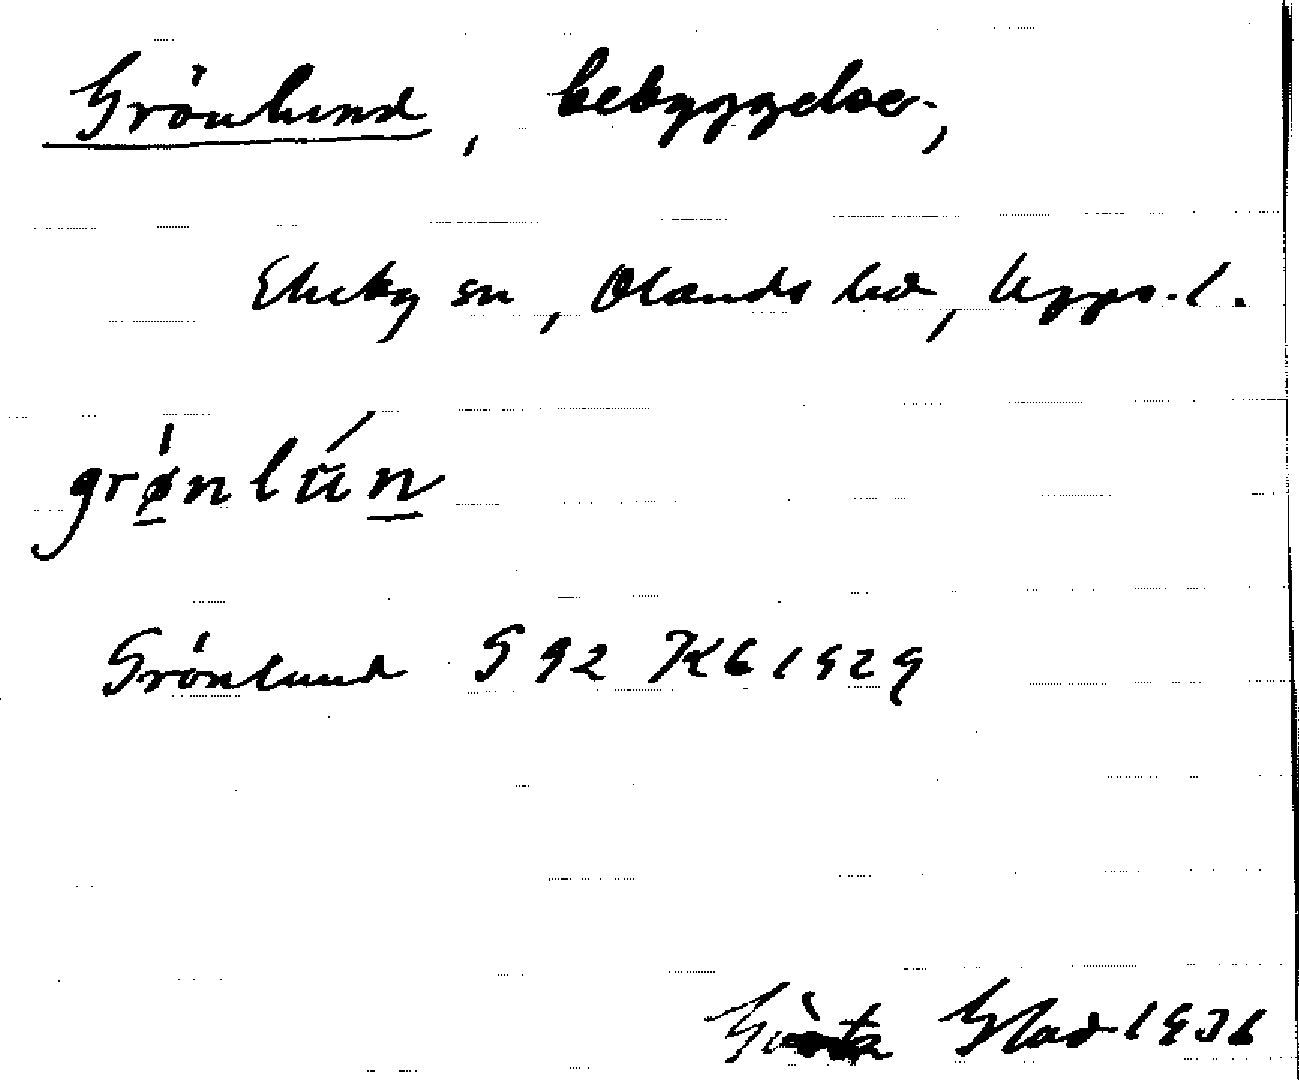 Grönlund, bebyggelse,
Ekeby sn, Olands hd, Upps. l.
grø̱̀nlū́ṉ
Grönlund G 92 KB 1929
Gösta Glad 1936